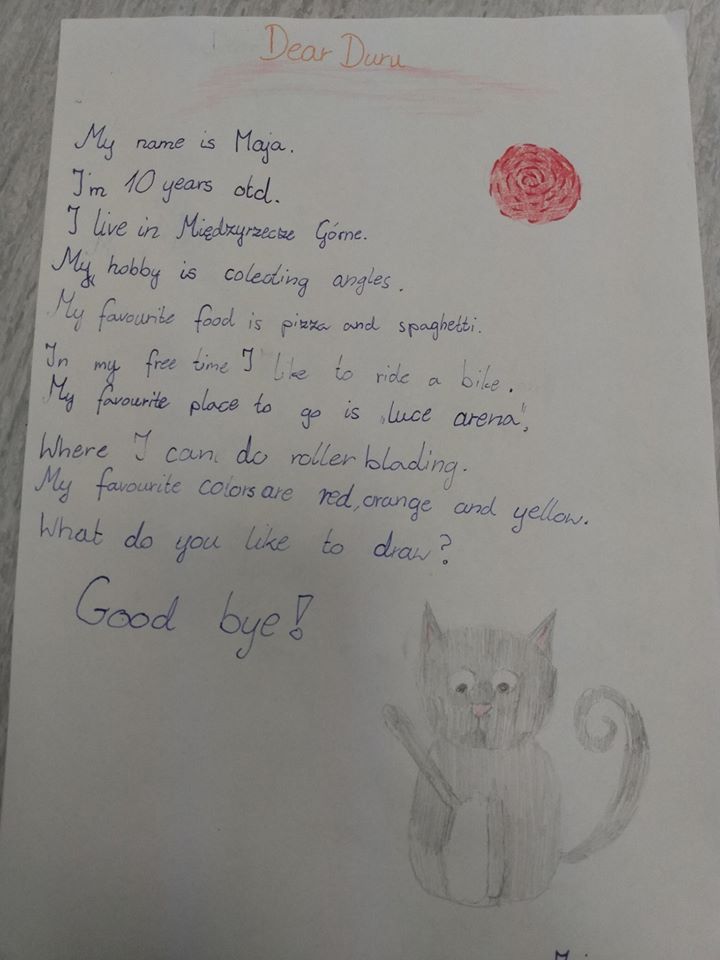 Dear Duru
My name is Maja.
I'm 10 years old.
I live in Międzyrzecze Górne.
My hobby is colecting angles.
My favourite food is pizza and spaghetti.
In my free time I like to ride a bike.
My favourite place to go is „luce arena",
Where I can do roller blading.
My favourite colors are red, orange and yellow.
What do you like to draw?
Good bye!